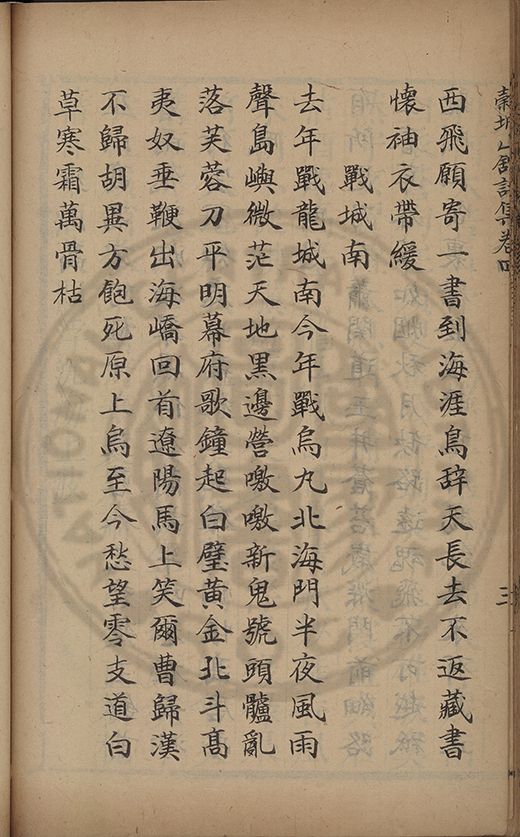 西飛願寄一書到海涯鳥辞天長去不返藏書
懷袖衣帶緩
戰城南
去年戰龍城南今年戰烏丸北海門半夜風雨
聲島嶼微茫天地黑邊營噭噭新鬼號頭髗亂
落芙蓉刀平明幕府歌鐘起白璧黃金北斗髙
夷奴垂鞭出海嶠回首遼陽馬上笑爾曹歸漢
不歸胡異方飽死原上烏至今愁望零支道白
草寒霜萬骨枯